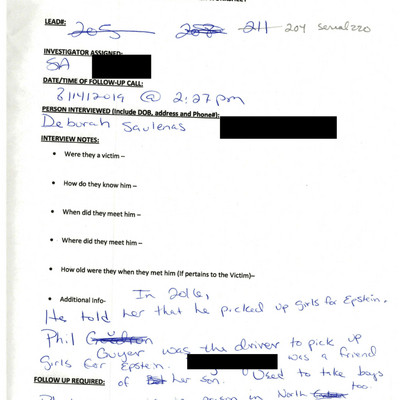 LEAD#: 205 211 204 serial 220
INVESTIGATOR ASSIGNED:
SA
DATE/TIME OF FOLLOW-UP CALL:
8/14/2019 @ 2:27pm
PERSON INTERVIEWED (Include DOB, address and Phone#):
Deborah
INTERVIEW NOTES:
• Were they a victim –
• How do they know him –
• When did they meet him –
• Where did they meet him –
• How old were they when they met him (If pertains to the Victim)–
• Additional Info- In 2016,
He told her that he picked up girls for Epstein.
Phil
Guyer was the driver to pick up
girls for Epstein. was a friend
of her son. Used to take boys too.
FOLLOW UP REQUIRED:
in North